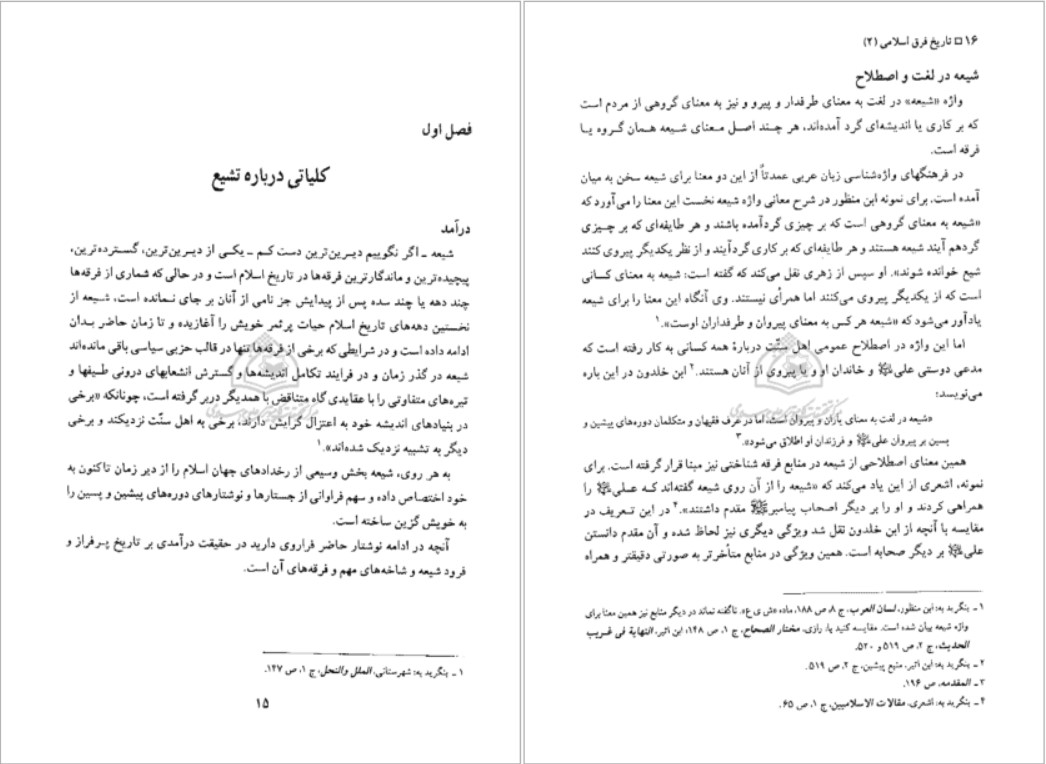 فصل اول
کلیاتی درباره تشیع
درآمد
شیعه ـ اگر نگوییم دیرین‌ترین دست کم ـ یکی از دیرین‌ترین، گسترده‌ترین،
پیچیده‌ترین و ماندگارترین فرقه‌ها در تاریخ اسلام است و در حالی که شماری از فرقه‌ها
چند دهه یا چند سده پس از پیدایش جز نامی از آنان بر جای نمانده است، شیعه از
نخستین دهه‌های تاریخ اسلام حیات پرثمر خویش را آغازیده و تا زمان حاضر بدان
ادامه داده است و در شرایطی که برخی از فرقه‌ها تنها در قالب حزبی سیاسی باقی مانده‌اند
شیعه در گذر زمان و در فرایند تکامل اندیشه‌ها و گسترش انشعابهای درونی طیفها و
تیره‌های متفاوتی را با عقایدی گاه متناقض با همدیگر دربر گرفته است، چونانکه «برخی
در بنیادهای اندیشه خود به اعتزال گرایش دارند، برخی به اهل سنّت نزدیکند و برخی
دیگر به تشبیه نزدیک شده‌اند».۱
به هر روی، شیعه بخش وسیعی از رخدادهای جهان اسلام را از دیر زمان تاکنون به
خود اختصاص داده و سهم فراوانی از جستارها و نوشتارهای دوره‌های پیشین و پسین را
به خویش گزین ساخته است.
آنچه در ادامه نوشتار حاضر فراروی دارید در حقیقت درآمدی بر تاریخ پرفراز و
فرود شیعه و شاخه‌های مهم و فرقه‌های آن است.
۱ ـ بنگرید به: شهرستانی، الملل والنحل، ج ۱، ص ۱۴۷.
۱۵
۱۶ □ تاریخ فرق اسلامی (۲)
شیعه در لغت و اصطلاح
واژه «شیعه» در لغت به معنای طرفدار و پیرو و نیز به معنای گروهی از مردم است
که بر کاری یا اندیشه‌ای گرد آمده‌اند، هر چند اصل معنای شیعه همان گروه یا
فرقه است.
در فرهنگهای واژه‌شناسی زبان عربی عمدتاً از این دو معنا برای شیعه سخن به میان
آمده است. برای نمونه ابن منظور در شرح معانی واژه شیعه نخست این معنا را می‌آورد که
«شیعه به معنای گروهی است که بر چیزی گردآمده باشند و هر طایفه‌ای که بر چیزی
گردهم آیند شیعه هستند و هر طایفه‌ای که بر کاری گردآیند و از نظر یکدیگر پیروی کنند
شیع خوانده شوند». او سپس از زهری نقل می‌کند که گفته است: شیعه به معنای کسانی
است که از یکدیگر پیروی می‌کنند اما همرأی نیستند. وی آنگاه این معنا را برای شیعه
یادآور می‌شود که «شیعه هر کس به معنای پیروان و طرفداران اوست».۱
اما این واژه در اصطلاح عمومی اهل سنّت دربارهٔ همه کسانی به کار رفته است که
مدعی دوستی علی ﷷ و خاندان او و یا پیروی از آنان هستند.۲ ابن خلدون در این باره
می‌نویسد:
«شیعه در لغت به معنای یاران و پیروان است، اما در عرف فقیهان و متکلمان دوره‌های پیشین و
پسین بر پیروان علی و فرزندان او اطلاق می‌شود».۳
همین معنای اصطلاحی از شیعه در منابع فرقه شناختی نیز مبنا قرار گرفته است. برای
نمونه، اشعری از این یاد می‌کند که «شیعه را از آن روی شیعه گفته‌اند که علی را
همراهی کردند و او را بر دیگر اصحاب پیامبر ﷺ مقدم داشتند».۴ در این تعریف در
مقایسه با آنچه از ابن خلدون نقل شد ویژگی دیگری نیز لحاظ شده و آن مقدم دانستن
علی بر دیگر صحابه است. همین ویژگی در منابع متأخرتر به صورتی دقیقتر و همراه
۱ ـ بنگرید به: ابن منظور، لسان العرب، ج ۸، ص ۱۸۸، ماده «ش ی ع». ناگفته نماند در دیگر منابع نیز همین معنا برای
واژه شیعه بیان شده است. مقایسه کنید با: رازی، مختار الصحاح، ج ۱، ص ۱۴۸؛ ابن اثیر، النهایة فی غریب
الحدیث، ج ۲، ص ۵۱۹ و ۵۲۰.
۲ ـ بنگرید به: ابن اثیر، منبع پیشین، ج ۲، ص ۵۱۹.
۳ ـ المقدمه، ص ۱۹۶.
۴ ـ بنگرید به: اشعری، مقالات الاسلامیین، ج ۱، ص ۶۵.